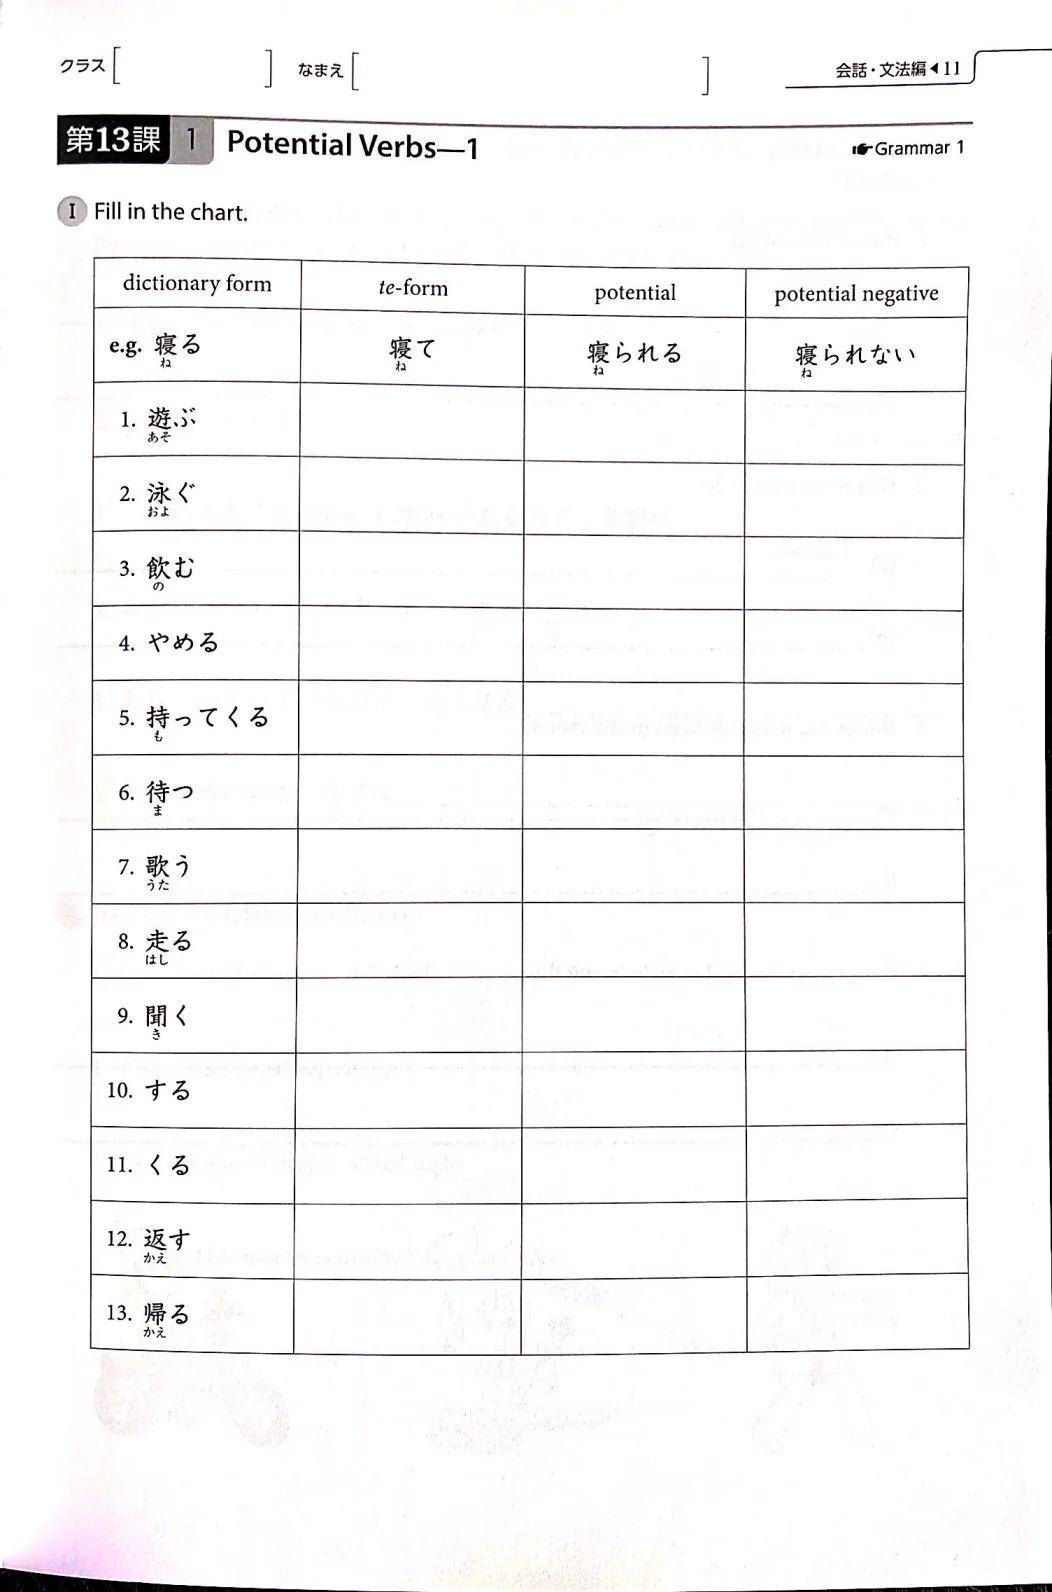 クラス[ ] なまえ[ ] 会話・文法編◀11
第13課 1 Potential Verbs—1 ☛Grammar 1
I Fill in the chart.
dictionary form te-form potential potential negative
e.g. 寝る 寝て 寝られる 寝られない
ね ね ね ね
1. 遊ぶ
あそ
2. 泳ぐ
およ
3. 飲む
の
4. やめる
5. 持ってくる
も
6. 待つ
ま
7. 歌う
うた
8. 走る
はし
9. 聞く
き
10. する
11. くる
12. 返す
かえ
13. 帰る
かえ